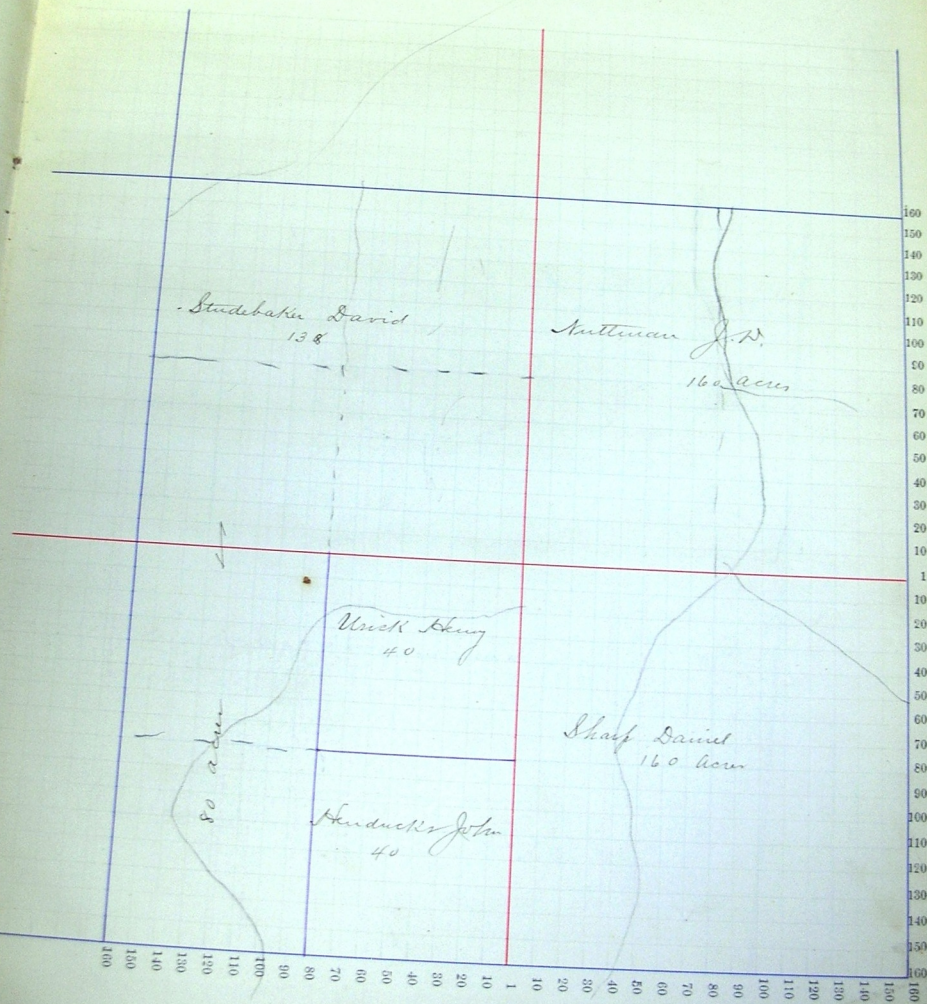 Studebaker David
138
Nuttman J. D.
160 acres
Urick Henry
40
Sharp Daniel
160 acres
80 acres
Hendricks John
40
160
150
140
130
120
110
100
90
80
70
60
50
40
30
20
10
1
10
20
30
40
50
60
70
80
90
100
110
120
130
140
150
160
160 150 140 130 120 110 100 90 80 70 60 50 40 30 20 10 1 10 20 30 40 50 60 70 80 90 100 110 120 130 140 150 160